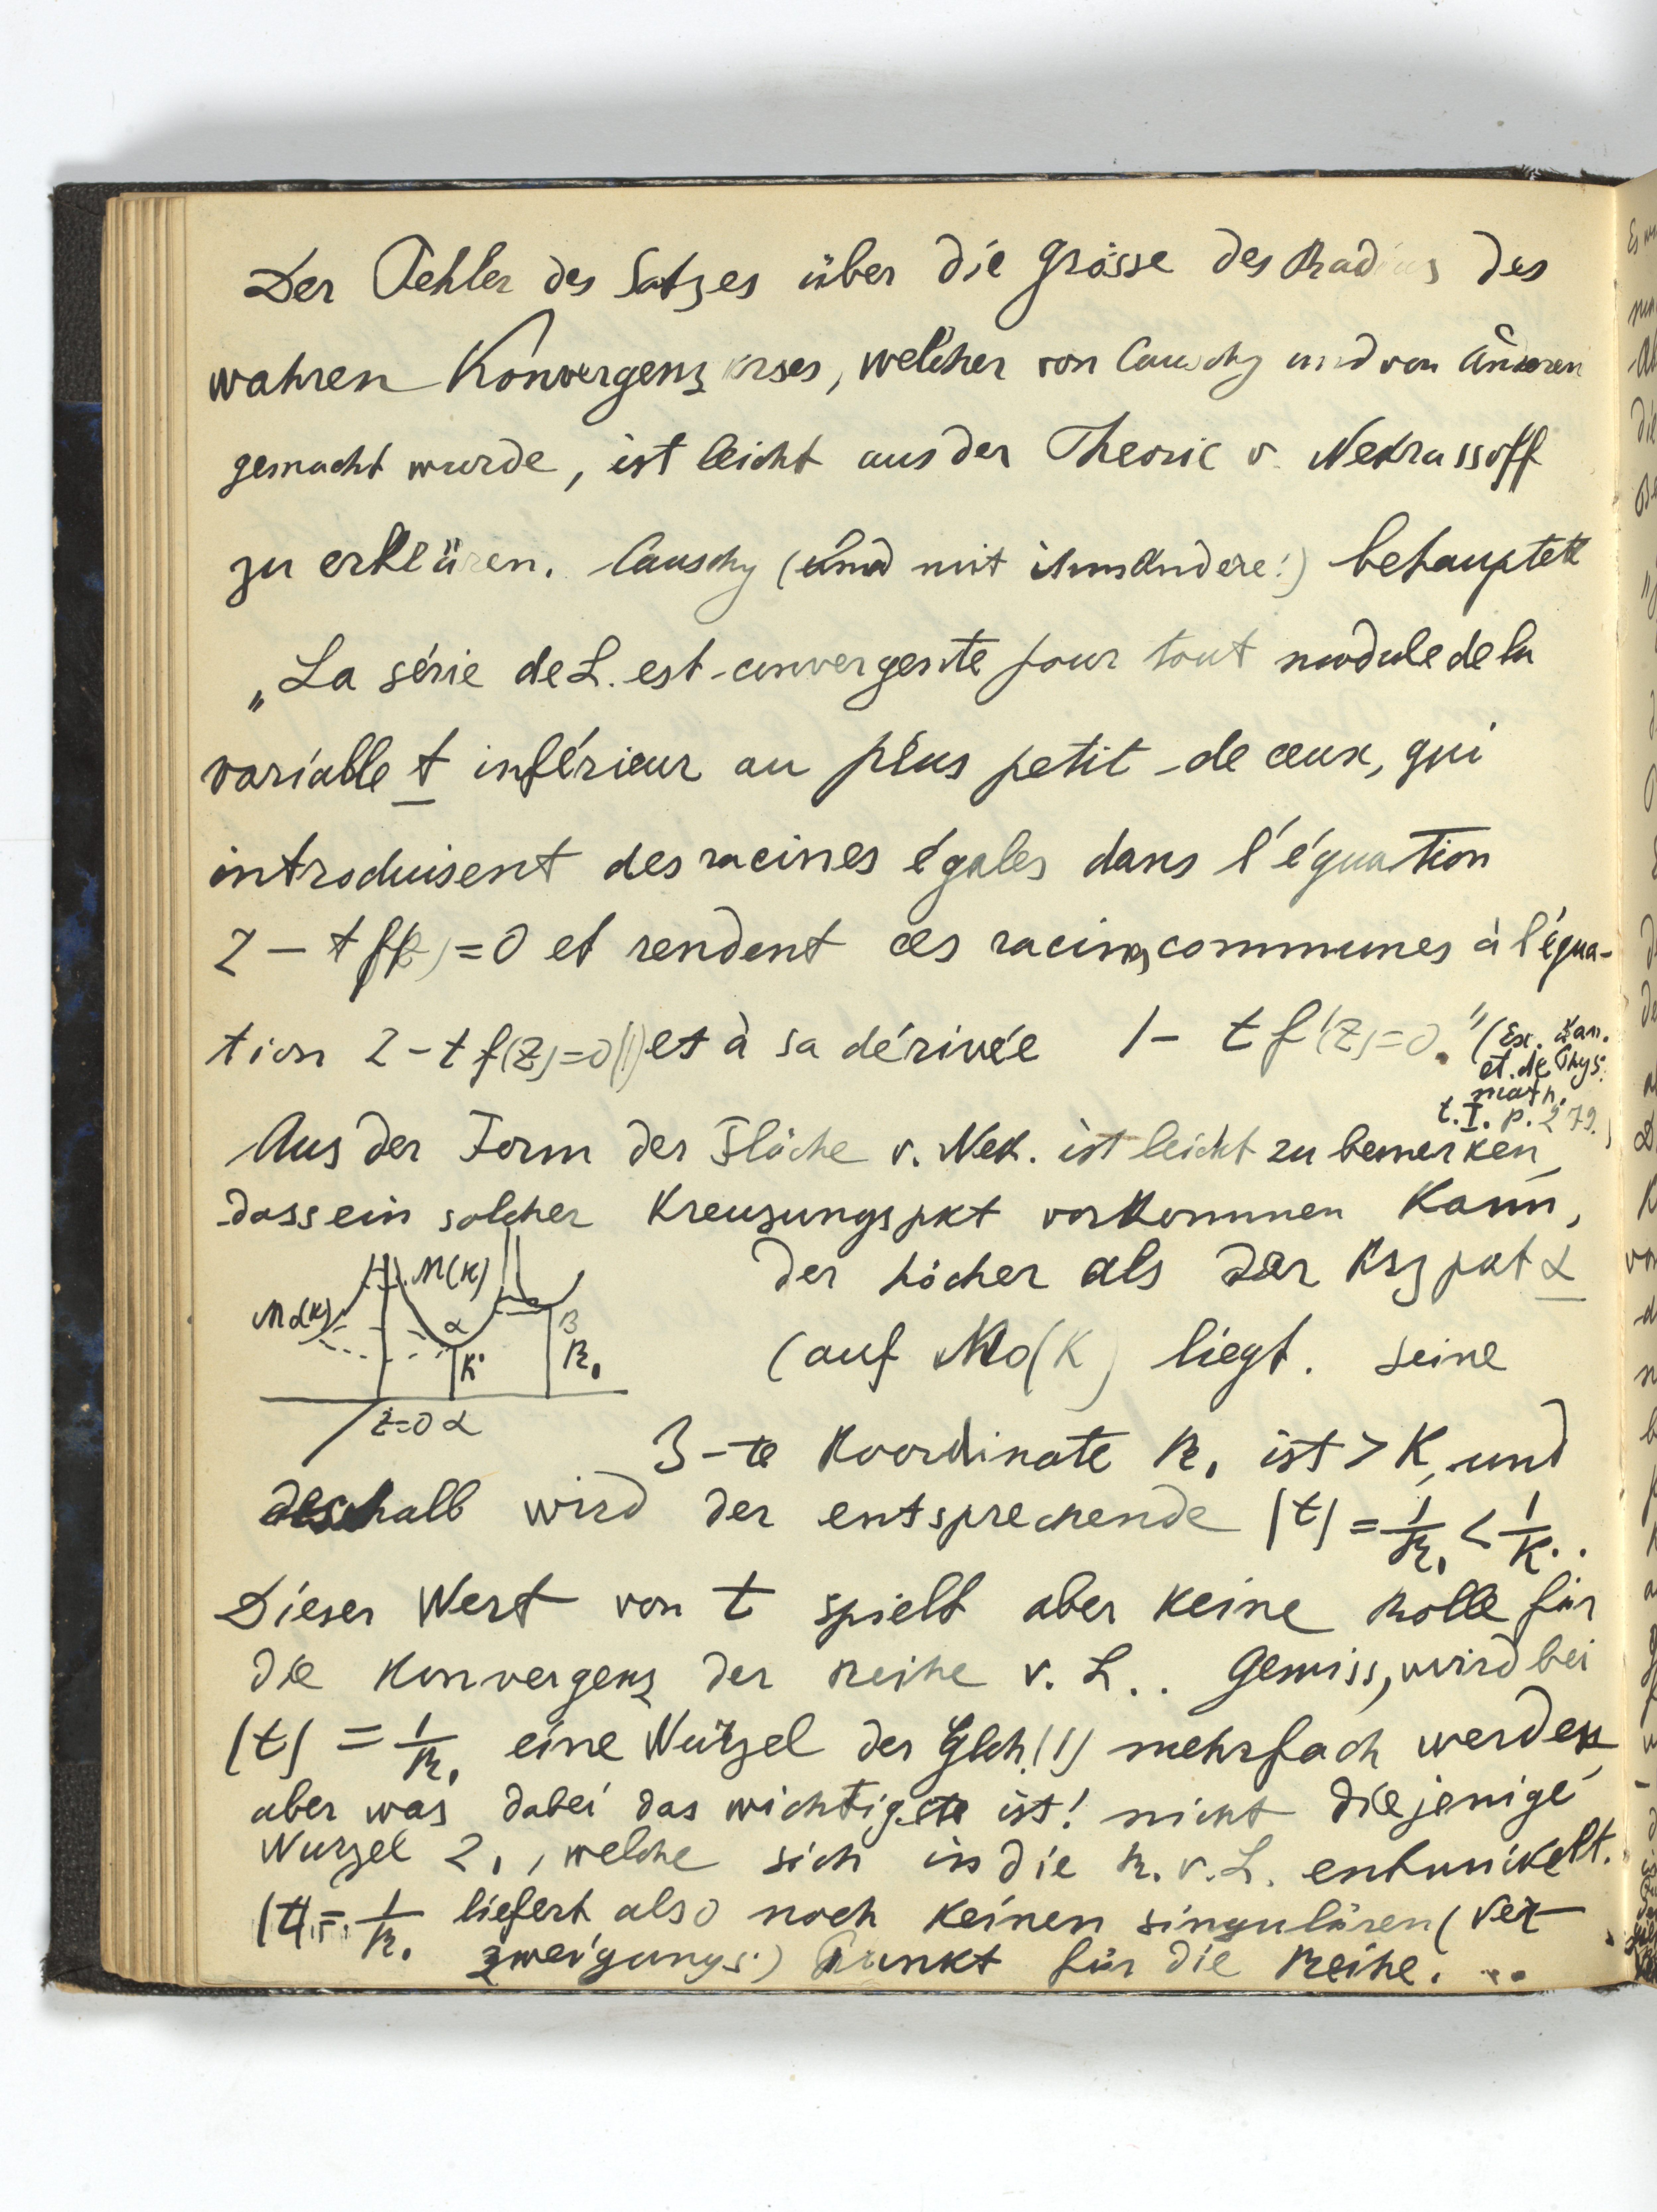 Der Fehler des Satzes über die Grösse des Radius des
wahren Konvergenz krses, welcher von Cauchy und von Anderen
gemacht wurde, ist leicht aus der Theorie v. Nekrassoff
zu erklären. Cauchy (und mit ihm Andere!) behauptet
„La série de L. est convergente pour tout module de la
variable t inférieur au plus petit de ceux, qui
introduisent des racines égales dans l'équation
z - t f(z) = 0 et rendent ces racines communes à l'équa-
tion z - t f(z) = 0 (1) et à sa dérivée 1 - t f'(z) = 0." (Ex. d'an.
et. de Phys.
math.
t. I. p. 279.)
Aus der Form der Fläche v. Nek. ist leicht zu bemerken,
dass ein solcher Kreuzungspkt vorkommen kann,
der höcher als der Krzpkt α
(auf M0(K) liegt. Seine
3-te Koordinate R1 ist > K, und
deshalb wird der entsprechende |t| = 1/R1 < 1/K..
Dieser Wert von t spielt aber keine Rolle für
die Konvergenz der Reihe v. L.. Gewiss, wird bei
|t| = 1/R1 eine Wurzel der Glch. (1) mehrfach werden,
aber was dabei das wichtigste ist! nicht diejenige
Wurzel z1, welche sich in die R. v. L. entwickelt.
|t| = 1/R1 liefert also noch keinen singulären (Ver-
zweigungs-) Punkt für die Reihe. ..
M(K)
α
K
B
R1
z=0 α